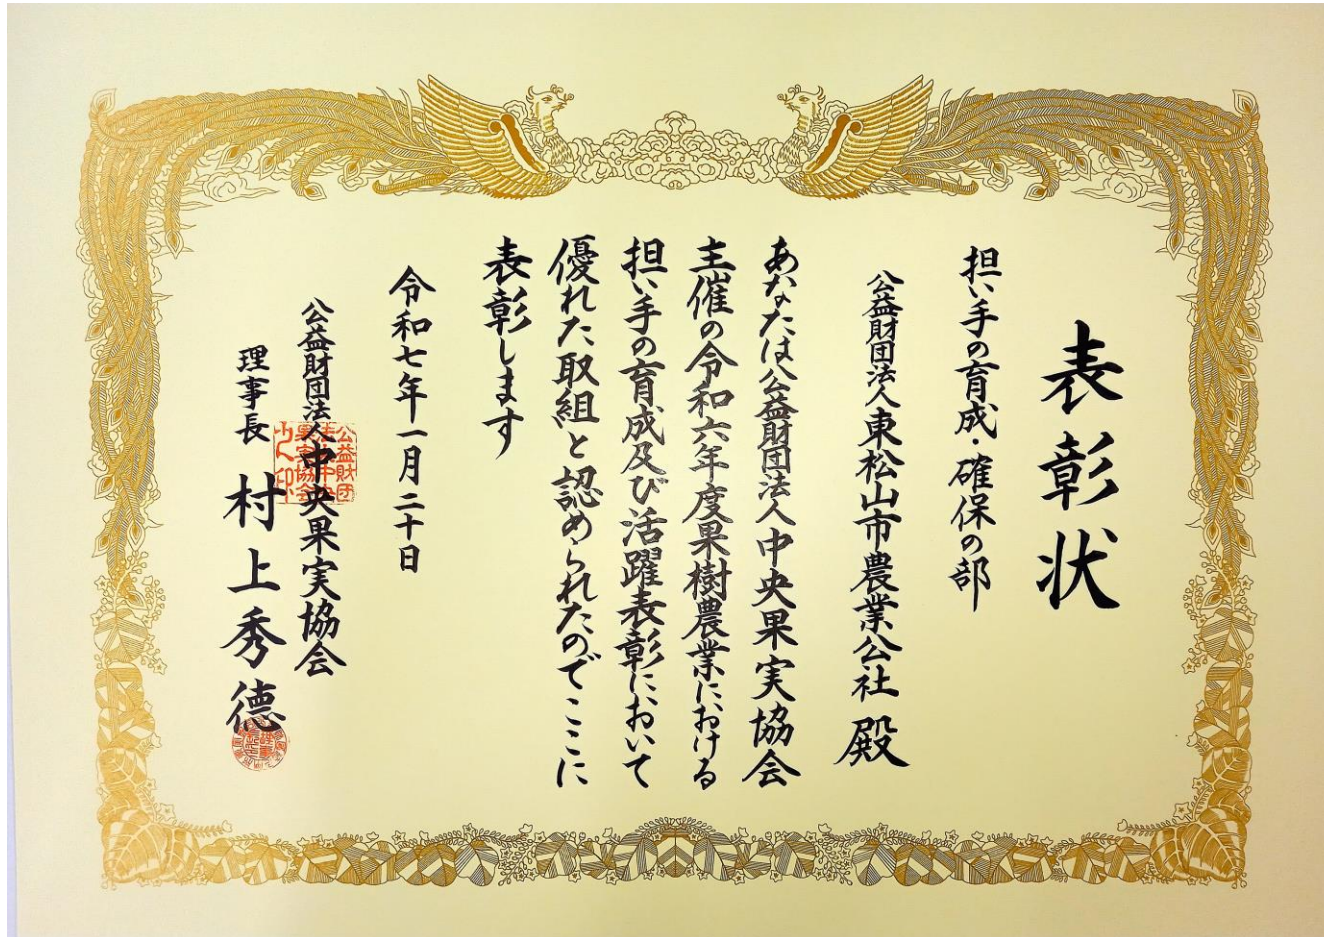 表彰状
担い手の育成・確保の部
公益財団法人東松山市農業公社 殿
あなたは公益財団法人中央果実協会
主催の令和六年度果樹農業における
担い手の育成及び活躍表彰において
優れた取組と認められたのでここに
表彰します
令和七年一月二十日
公益財団法人中央果実協会
理事長 村上秀德